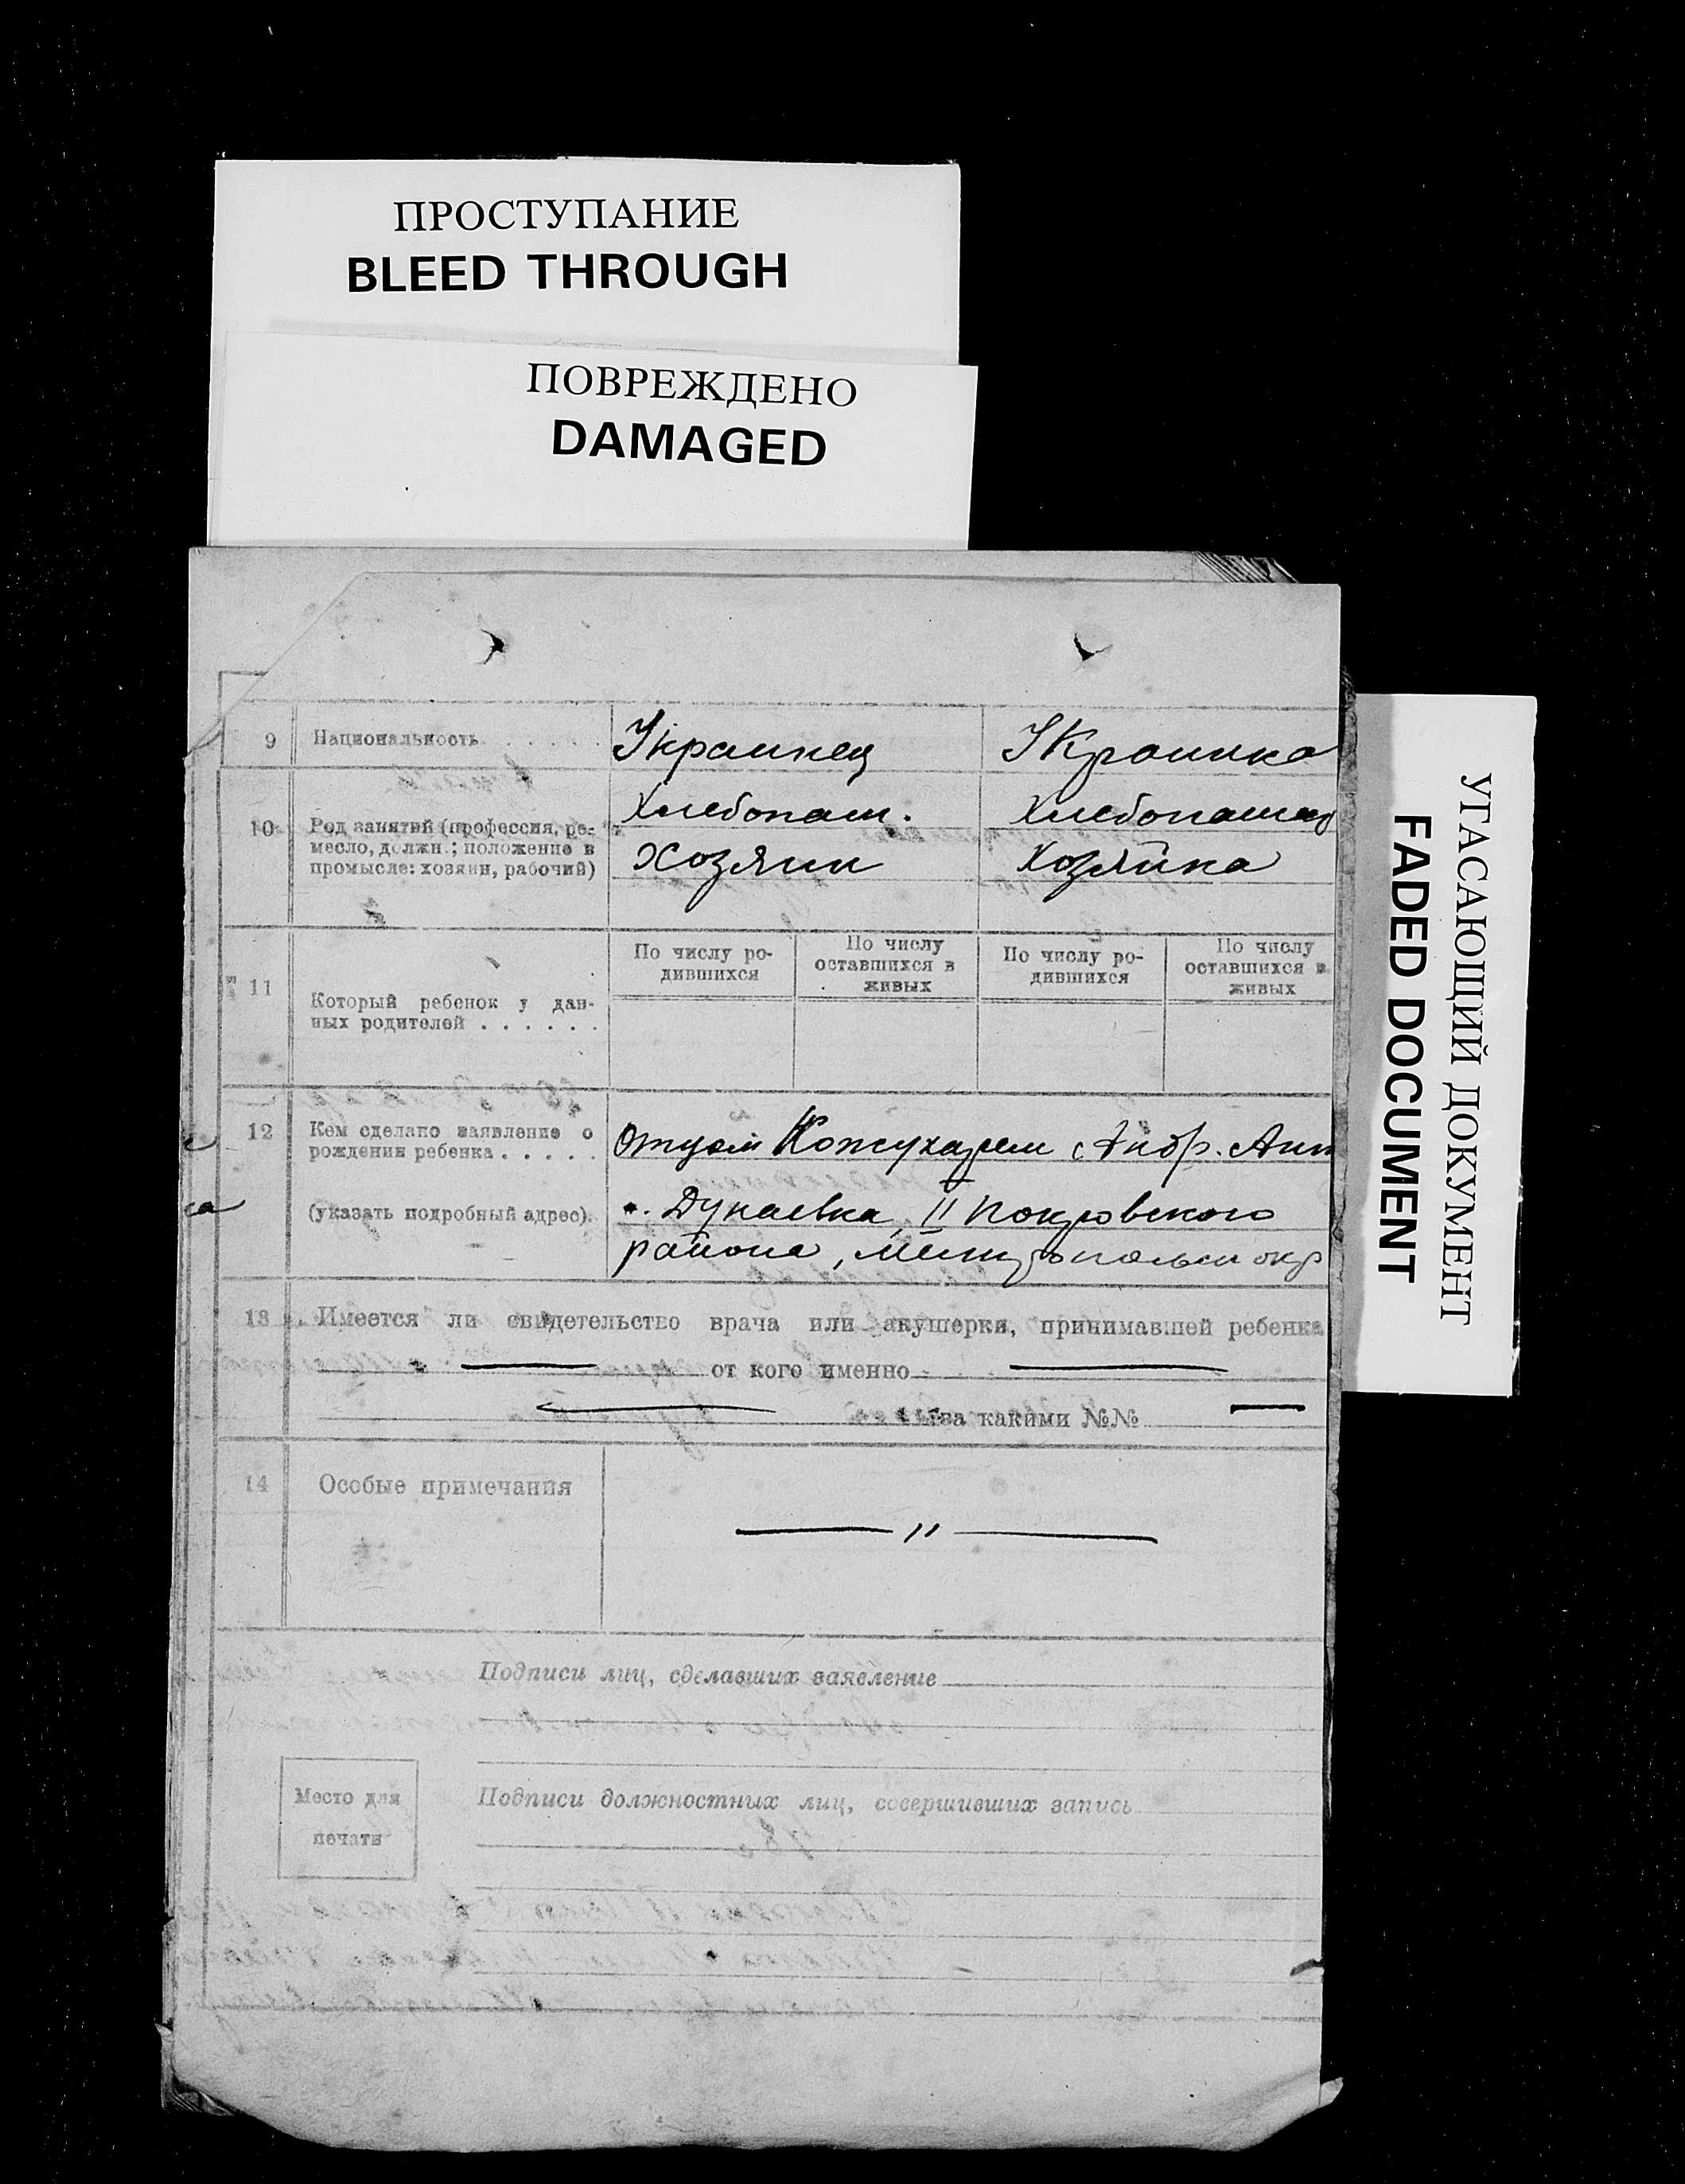 ПРОСТУПАНИЕ
BLEED THROUGH
ПОВРЕЖДЕНО
DAMAGED
УГАСАЮЩИЙ ДОКУМЕНТ
FADED DOCUMENT
9 Национальность . . . . . Украинец Украинка
10 Род занятий (профессия, ре-
месло, должн.; положение в
промысле: хозяин, рабочий)
Хлебопаш. Хлебопашец
Хозяин Хозяйка
11 Который ребенок у дан-
ных родителей . . . . . .
По числу ро-
дившихся
По числу
оставшихся в
живых
По числу ро-
дившихся
По числу
оставшихся в
живых
12 Кем сделано заявление о
рождении ребенка . . . . .
(указать подробный адрес).
Отцом Кожухарем Андр. Ант
Дунаевка, II Покровского
района, окр
13 Имеется ли свидетельство врача или акушерки, принимавшей ребенка
— от кого именно —
— за какими №№ —
14 Особые примечания
— " —
Подписи лиц, сделавших заявление
Место для
печати
Подписи должностных лиц, совершивших запись
са